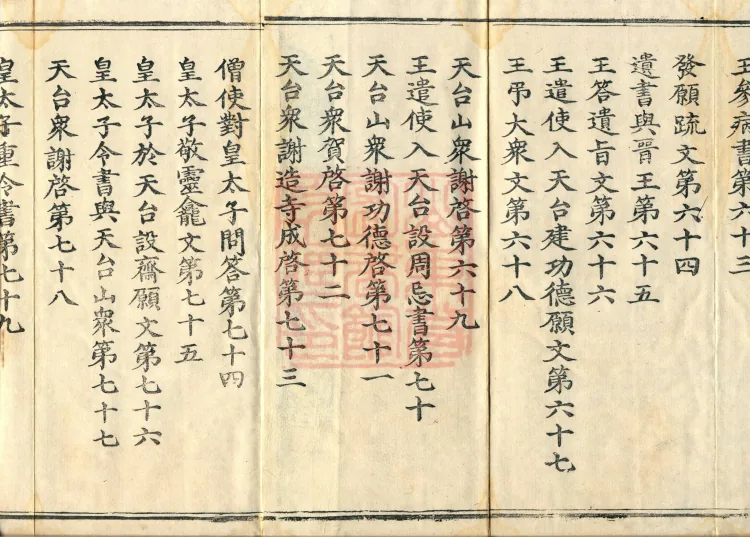 王參病書第六十三
發願疏文第六十四
遺書與晉王第六十五
王答遺旨文第六十六
王遣使入天台建功德願文第六十七
王弔大衆文第六十八
天台山衆謝啓第六十九
王遣使入天台設周忌書第七十
天台山衆謝功德啓第七十一
天台衆賀啓第七十二
天台衆謝造寺成啓第七十三
僧使對皇太子問答第七十四
皇太子敬靈龕文第七十五
皇太子於天台設齋願文第七十六
皇太子令書與天台山衆第七十七
天台衆謝啓第七十八
皇太子重令書第七十九